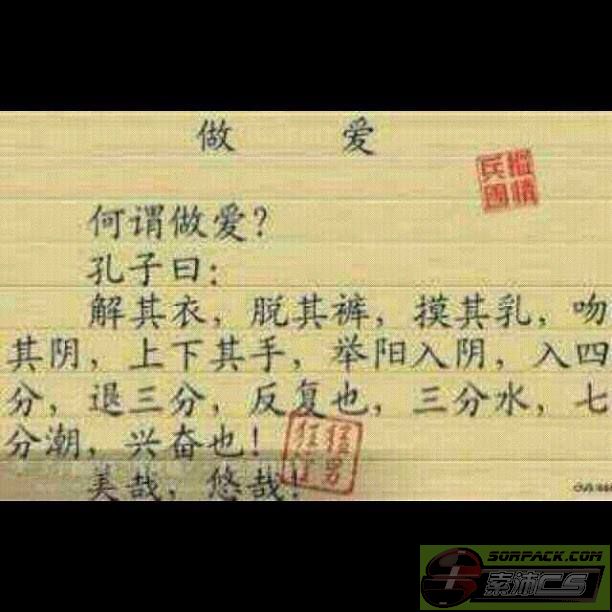 做 爱
縱情
兵團
何谓做爱?
孔子曰:
解其衣，脱其裤，摸其乳，吻
其阴，上下其手，举阳入阴，入四
分，退三分，反复也，三分水，七
分潮，兴奋也!
美哉，悠哉!
SORPACK.COM
索沛CS